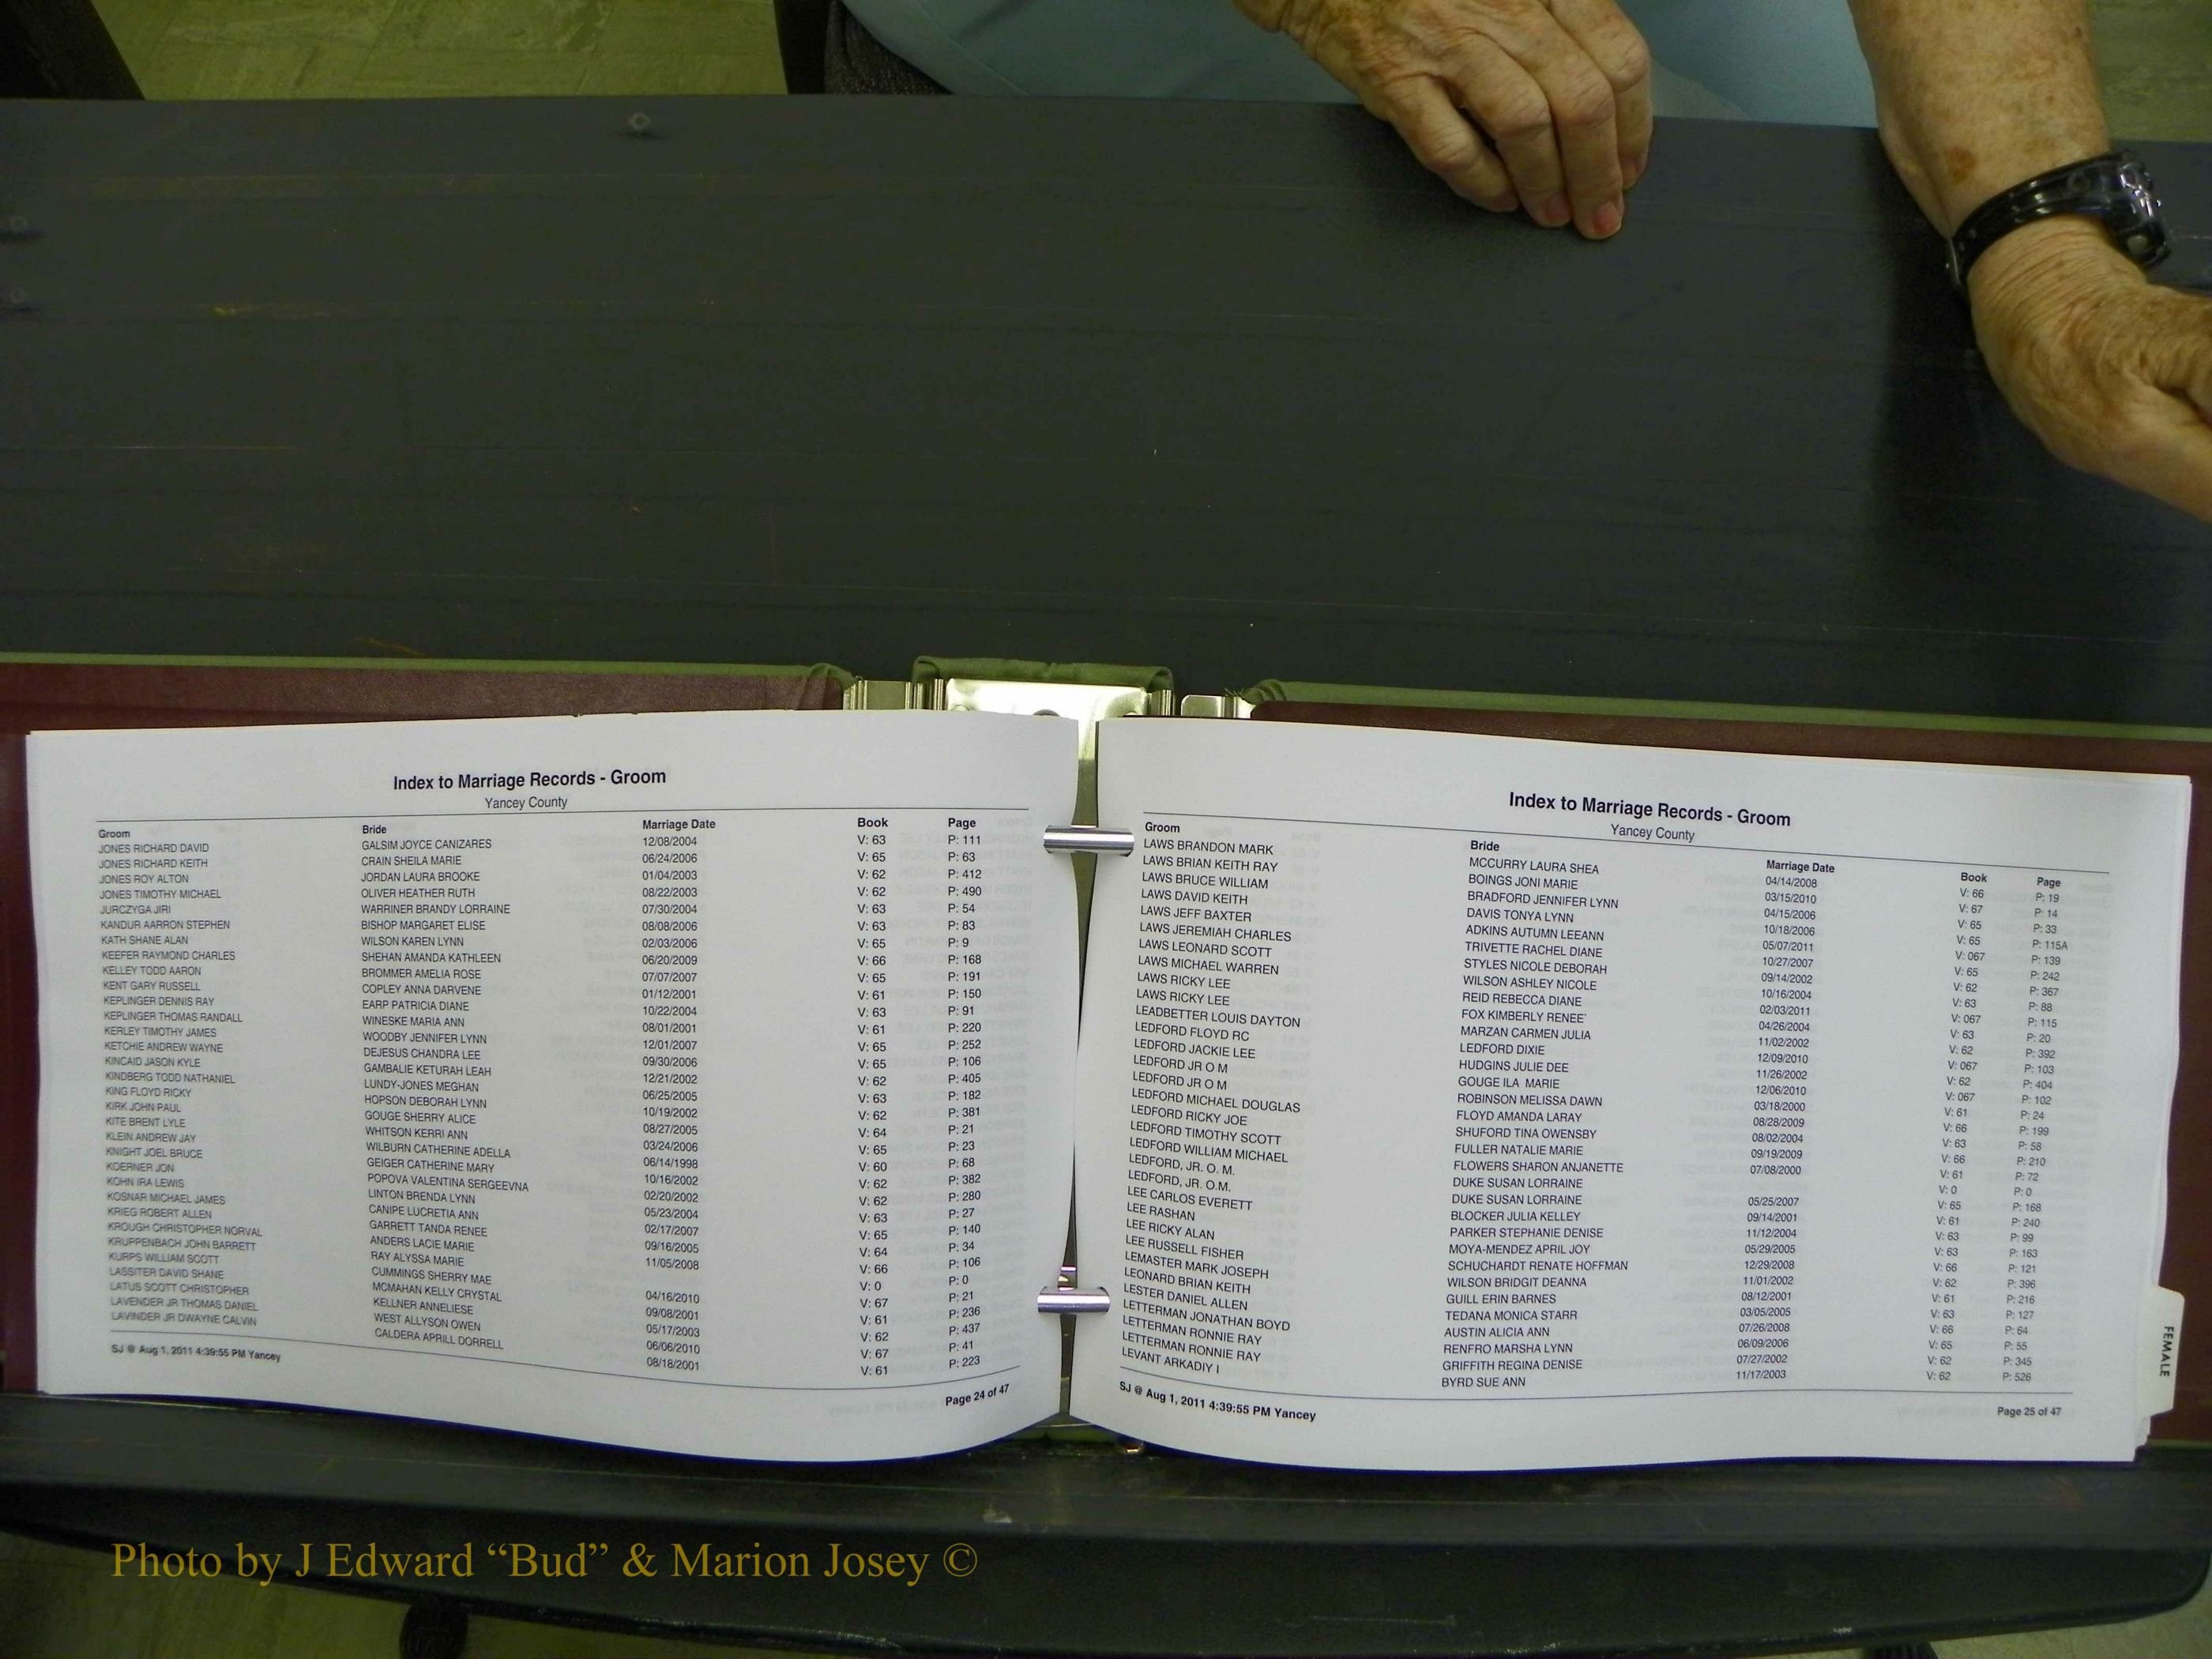 Index to Marriage Records - Groom
Yancey County
Groom Bride Marriage Date Book Page
JONES RICHARD DAVID GALSIM JOYCE CANIZARES 12/08/2004 V: 63 P: 111
JONES RICHARD KEITH CRAIN SHEILA MARIE 06/24/2006 V: 65 P: 63
JONES ROY ALTON JORDAN LAURA BROOKE 01/04/2003 V: 62 P: 412
JONES TIMOTHY MICHAEL OLIVER HEATHER RUTH 08/22/2003 V: 62 P: 490
JURCZYGA JIRI WARRINER BRANDY LORRAINE 07/30/2004 V: 63 P: 54
KANDUR AARRON STEPHEN BISHOP MARGARET ELISE 08/08/2006 V: 63 P: 83
KATH SHANE ALAN WILSON KAREN LYNN 02/03/2006 V: 65 P: 9
KEEFER RAYMOND CHARLES SHEHAN AMANDA KATHLEEN 06/20/2009 V: 66 P: 168
KELLEY TODD AARON BROMMER AMELIA ROSE 07/07/2007 V: 65 P: 191
KENT GARY RUSSELL COPLEY ANNA DARVENE 01/12/2001 V: 61 P: 150
KEPLINGER DENNIS RAY EARP PATRICIA DIANE 10/22/2004 V: 63 P: 91
KEPLINGER THOMAS RANDALL WINESKE MARIA ANN 08/01/2001 V: 61 P: 220
KERLEY TIMOTHY JAMES WOODBY JENNIFER LYNN 12/01/2007 V: 65 P: 252
KETCHIE ANDREW WAYNE DEJESUS CHANDRA LEE 09/30/2006 V: 65 P: 106
KINCAID JASON KYLE GAMBALIE KETURAH LEAH 12/21/2002 V: 62 P: 405
KINDBERG TODD NATHANIEL LUNDY-JONES MEGHAN 06/25/2005 V: 63 P: 182
KING FLOYD RICKY HOPSON DEBORAH LYNN 10/19/2002 V: 62 P: 381
KIRK JOHN PAUL GOUGE SHERRY ALICE 08/27/2005 V: 64 P: 21
KITE BRENT LYLE WHITSON KERRI ANN 03/24/2006 V: 65 P: 23
KLEIN ANDREW JAY WILBURN CATHERINE ADELLA 06/14/1998 V: 60 P: 68
KNIGHT JOEL BRUCE GEIGER CATHERINE MARY 10/16/2002 V: 62 P: 382
KOERNER JON POPOVA VALENTINA SERGEEVNA 02/20/2002 V: 62 P: 280
KOHN IRA LEWIS LINTON BRENDA LYNN 05/23/2004 V: 63 P: 27
KOSNAR MICHAEL JAMES CANIPE LUCRETIA ANN 02/17/2007 V: 65 P: 140
KRIEG ROBERT ALLEN GARRETT TANDA RENEE 09/16/2005 V: 64 P: 34
KROUGH CHRISTOPHER NORVAL ANDERS LACIE MARIE 11/05/2008 V: 66 P: 106
KRUPPENBACH JOHN BARRETT RAY ALYSSA MARIE V: 0 P: 0
KURPS WILLIAM SCOTT CUMMINGS SHERRY MAE 04/16/2010 V: 67 P: 21
LASSITER DAVID SHANE MCMAHAN KELLY CRYSTAL 09/08/2001 V: 61 P: 236
LATUS SCOTT CHRISTOPHER KELLNER ANNELIESE 05/17/2003 V: 62 P: 437
LAVENDER JR THOMAS DANIEL WEST ALLYSON OWEN 06/06/2010 V: 67 P: 41
LAVINDER JR DWAYNE CALVIN CALDERA APRILL DORRELL 08/18/2001 V: 61 P: 223
SJ @ Aug 1, 2011 4:39:55 PM Yancey Page 24 of 47
Index to Marriage Records - Groom
Yancey County
Groom Bride Marriage Date Book Page
LAWS BRANDON MARK MCCURRY LAURA SHEA 04/14/2008 V: 66 P: 19
LAWS BRIAN KEITH RAY BOINGS JONI MARIE 03/15/2010 V: 67 P: 14
LAWS BRUCE WILLIAM BRADFORD JENNIFER LYNN 04/15/2006 V: 65 P: 33
LAWS DAVID KEITH DAVIS TONYA LYNN 10/18/2006 V: 65 P: 115A
LAWS JEFF BAXTER ADKINS AUTUMN LEEANN 05/07/2011 V: 067 P: 139
LAWS JEREMIAH CHARLES TRIVETTE RACHEL DIANE 10/27/2007 V: 65 P: 242
LAWS LEONARD SCOTT STYLES NICOLE DEBORAH 09/14/2002 V: 62 P: 367
LAWS MICHAEL WARREN WILSON ASHLEY NICOLE 10/16/2004 V: 63 P: 88
LAWS RICKY LEE REID REBECCA DIANE 02/03/2011 V: 067 P: 115
LAWS RICKY LEE FOX KIMBERLY RENEE' 04/26/2004 V: 63 P: 20
LEADBETTER LOUIS DAYTON MARZAN CARMEN JULIA 11/02/2002 V: 62 P: 392
LEDFORD FLOYD RC LEDFORD DIXIE 12/09/2010 V: 067 P: 103
LEDFORD JACKIE LEE HUDGINS JULIE DEE 11/26/2002 V: 62 P: 404
LEDFORD JR O M GOUGE ILA MARIE 12/06/2010 V: 067 P: 102
LEDFORD JR O M ROBINSON MELISSA DAWN 03/18/2000 V: 61 P: 24
LEDFORD MICHAEL DOUGLAS FLOYD AMANDA LARAY 08/28/2009 V: 66 P: 199
LEDFORD RICKY JOE SHUFORD TINA OWENSBY 08/02/2004 V: 63 P: 58
LEDFORD TIMOTHY SCOTT FULLER NATALIE MARIE 09/19/2009 V: 66 P: 210
LEDFORD WILLIAM MICHAEL FLOWERS SHARON ANJANETTE 07/08/2000 V: 61 P: 72
LEDFORD, JR. O. M. DUKE SUSAN LORRAINE V: 0 P: 0
LEDFORD, JR. O.M. DUKE SUSAN LORRAINE 05/25/2007 V: 65 P: 168
LEE CARLOS EVERETT BLOCKER JULIA KELLEY 09/14/2001 V: 61 P: 240
LEE RASHAN PARKER STEPHANIE DENISE 11/12/2004 V: 63 P: 99
LEE RICKY ALAN MOYA-MENDEZ APRIL JOY 05/29/2005 V: 63 P: 163
LEE RUSSELL FISHER SCHUCHARDT RENATE HOFFMAN 12/29/2008 V: 66 P: 121
LEMASTER MARK JOSEPH WILSON BRIDGIT DEANNA 11/01/2002 V: 62 P: 396
LEONARD BRIAN KEITH GUILL ERIN BARNES 08/12/2001 V: 61 P: 216
LESTER DANIEL ALLEN TEDANA MONICA STARR 03/05/2005 V: 63 P: 127
LETTERMAN JONATHAN BOYD AUSTIN ALICIA ANN 07/26/2008 V: 66 P: 64
LETTERMAN RONNIE RAY RENFRO MARSHA LYNN 06/09/2006 V: 65 P: 55
LETTERMAN RONNIE RAY GRIFFITH REGINA DENISE 07/27/2002 V: 62 P: 345
LEVANT ARKADIY I BYRD SUE ANN 11/17/2003 V: 62 P: 526
SJ @ Aug 1, 2011 4:39:55 PM Yancey Page 25 of 47
FEMALE
Photo by J Edward “Bud” & Marion Josey ©